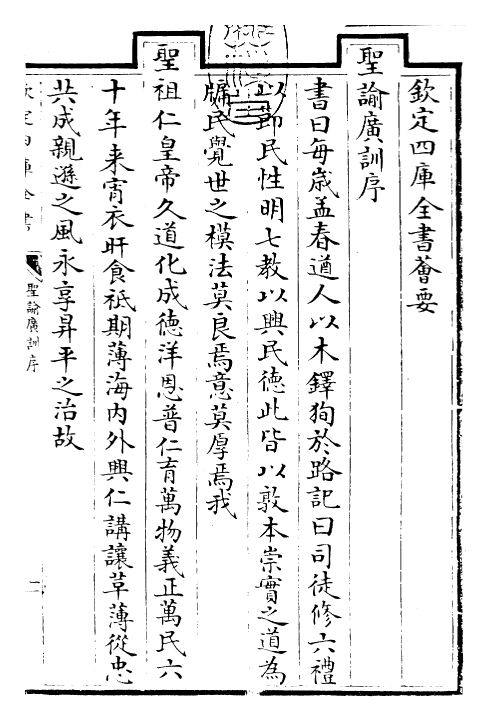 欽定四庫全書薈要
聖諭廣訓序
書曰每歲孟春遒人以木鐸狥於路記曰司徒修六禮
以節民性明七教以興民德此皆以敦本崇實之道為
牖民覺世之模法莫良焉意莫厚焉我
聖祖仁皇帝久道化成德洋恩普仁育萬物義正萬民六
十年來宵衣旰食祇期薄海內外興仁講讓革薄從忠
共成親遜之風永享昇平之治故
欽定四庫全書
聖諭廣訓序